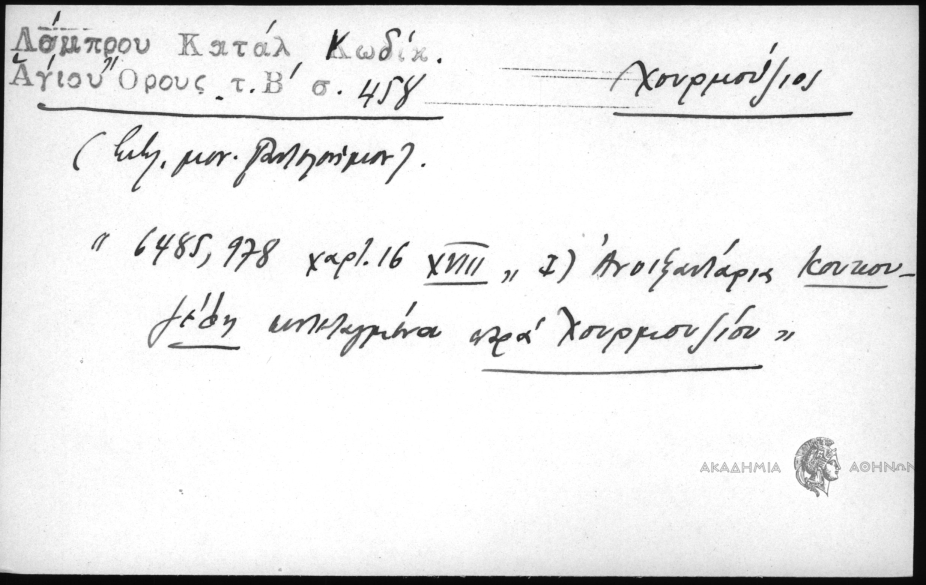 Λάμπρου Κατάλ Κωδίκ.
Ἁγίου Ὄρους τ. Β΄ σ. 458
Χουρμούζιος
μον. Παντελεήμον).
" 6485, 978 χαρτ. 16 XVIII „ I) Ἀνοιξαντάρια Κουκου-
ζέλη συντεταγμένα παρὰ Χουρμουζίου "
ΑΚΑΔΗΜΙΑ ΑΘΗΝΩΝ